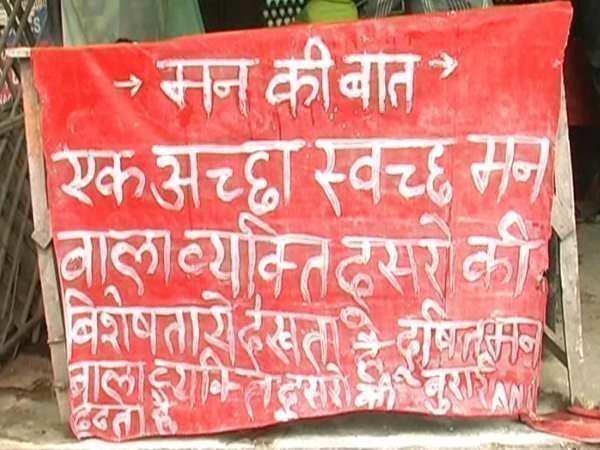 → मन की बात →
एक अच्छा स्वच्छ मन
वाला व्यक्ति दुसरो की
बिशेषताये देखता है दूषित मन
बाला व्यक्ति दुसरो की बुराई
ढुढता है
ANI